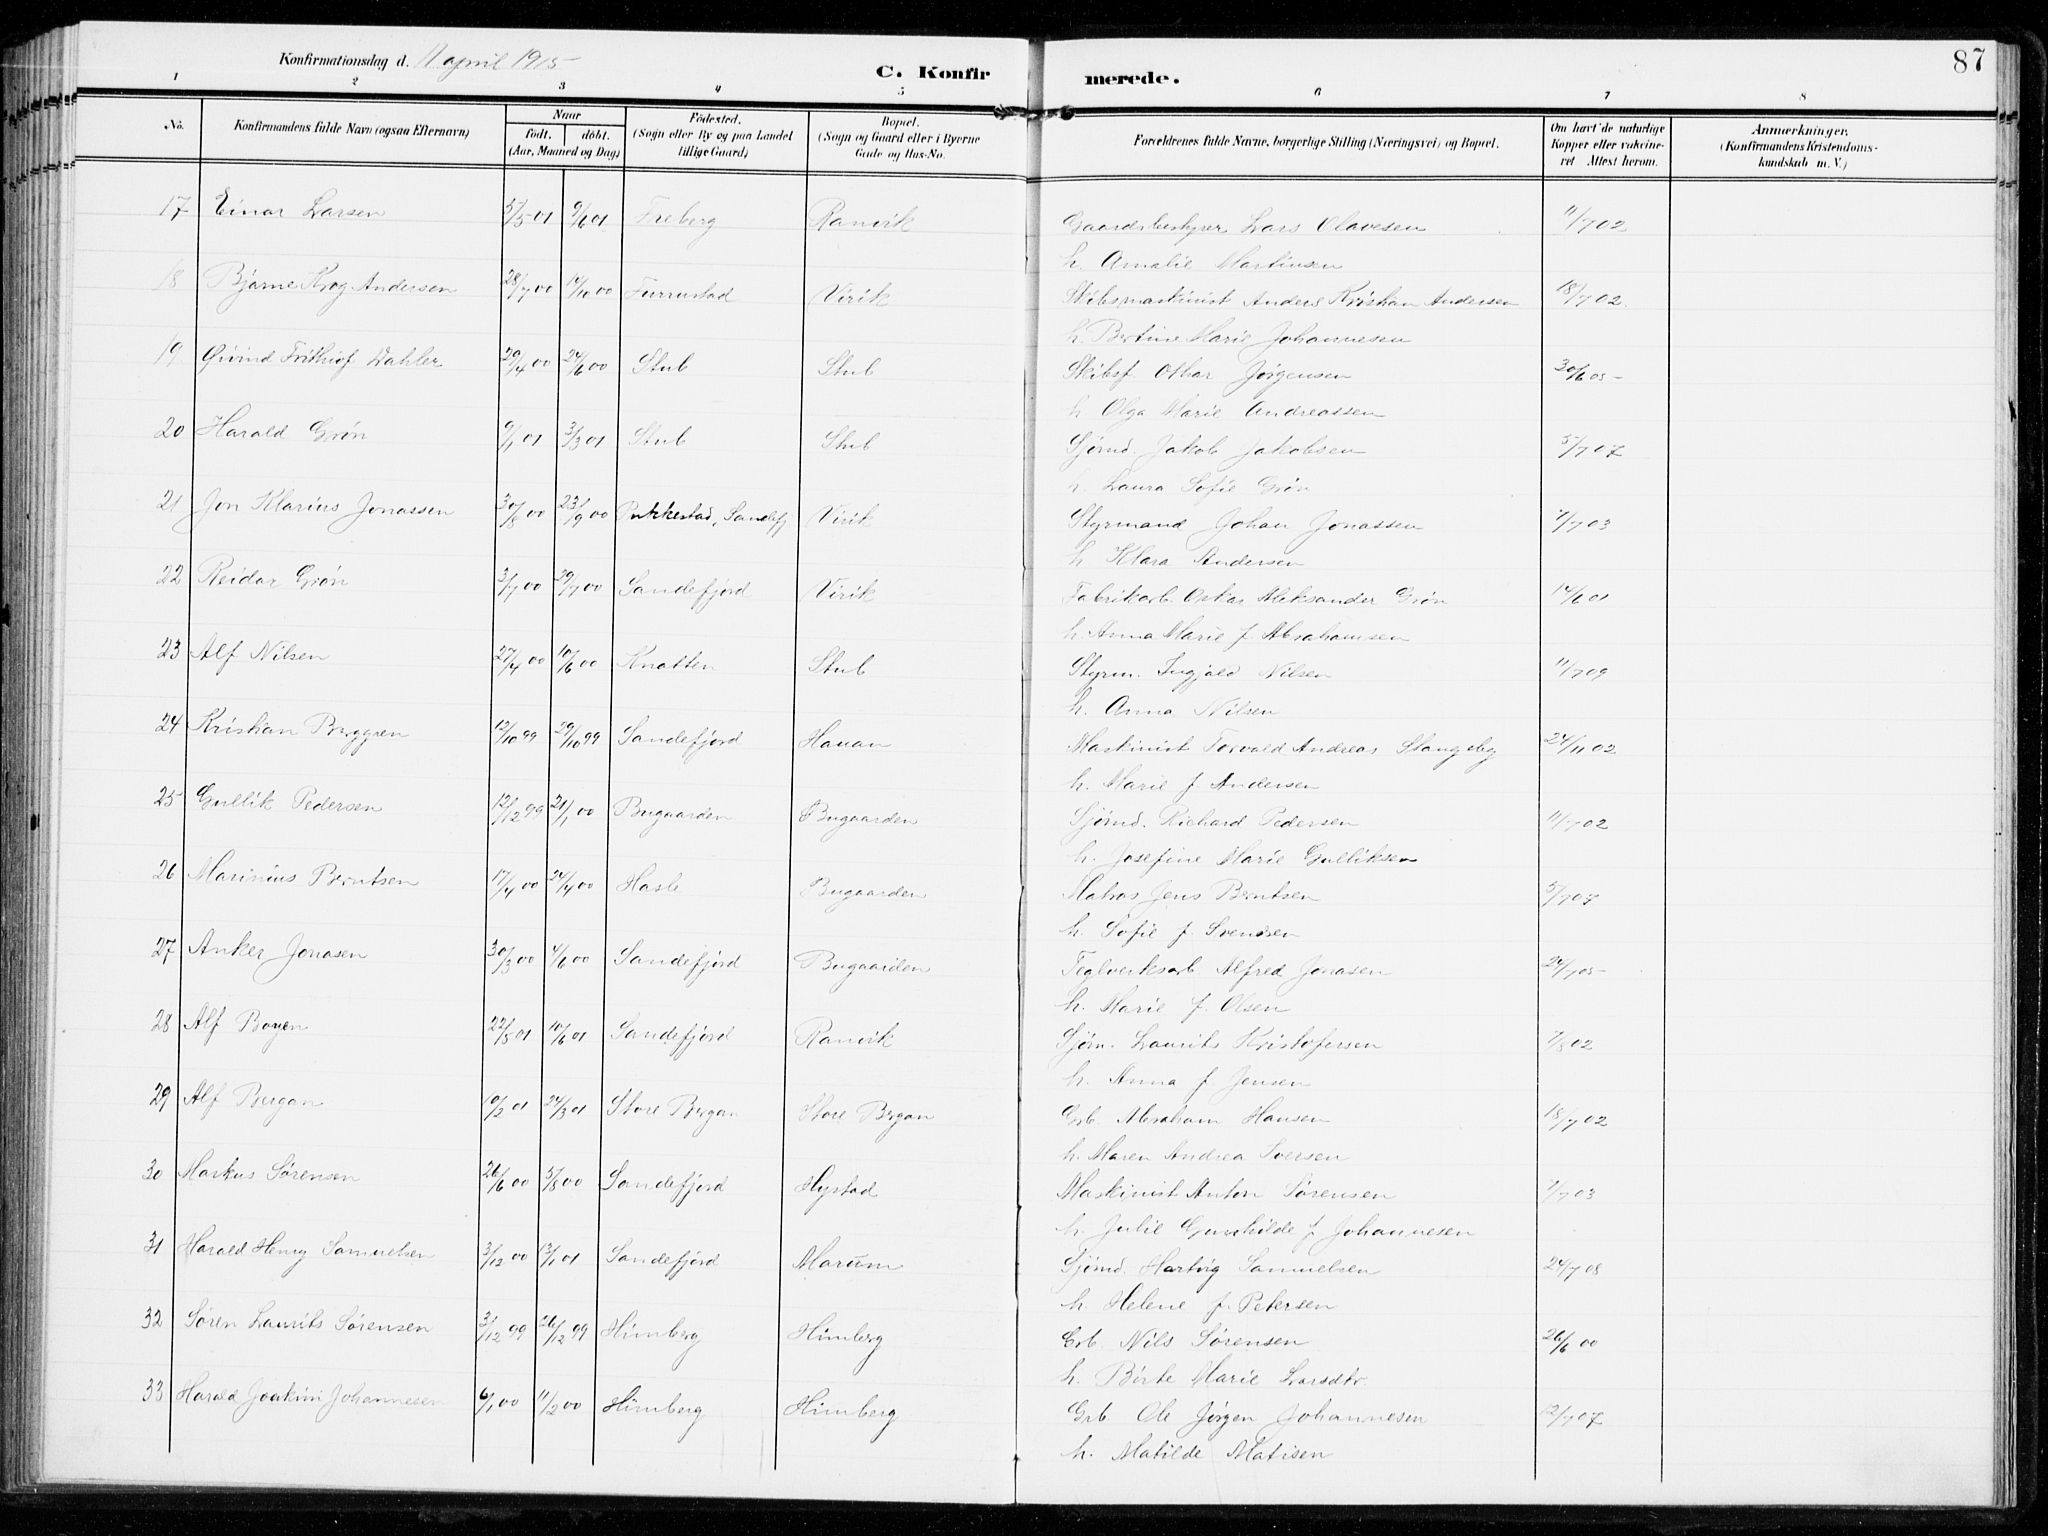 87
Konfirmationsdag d. 11 april 1915
C. Konfirmerede.
1 2 3 4 5 6 7 8
No. Konfirmandens fulde Navn (ogsaa Efternavn) Naar født. døbt. (Aar, Maaned og Dag) Fødested. (Sogn eller By og paa Landet tillige Gaard) Bopæl. (Sogn og Gaard eller i Byerne Gade og Hus-No. Forældrenes fulde Navne, borgerlige Stilling (Næringsvei) og Bopæl. Om havt de naturlige Kopper eller vakcineret Attest herom. Anmærkninger. (Konfirmandens Kristendomskundskab m. V.)
17 Einar Larsen 5/5 01 9/6 01 Freberg Ranvik Gaardsbestyrer Lars Olavesen 11/7 02
h. Amalie Martinsen
18 Bjarne Krog Andersen 28/7 00 14/10 00 Furustad Virik Skibsmaskinist Anders Kristian Andersen 18/7 02.
h. Bertine Marie Johannesen
19 Øivind Frithiof Dahler 29/4 00 24/6 00 Stub Stub Skibsf Othar Jørgensen 30/6 05
h Olga Marie Andreassen
20 Harald Grøn 9/1 01 3/3 01 Stub Stub Sjømd. Jakob Jakobsen 5/7 07
h. Laura Sofie Grøn
21 Jon Klarius Jonassen 30/8 00 23/9 00 Pukkestad, Sandefj Virik Styrmand Johan Jonassen 7/7 03
h Klara Andersen
22 Reidar Grøn 3/7 00 29/7 00 Sandefjord Virik Fabrikarb. Oskar Aleksander Grøn 14/6 01
h. Anna Marie f Abrahamsen
23 Alf Nilsen 27/4 00 10/6 00 Knatten Stub Styrm. Ingjald Nilsen 11/7 09
h. Anna Nilsen
24 Kristian Berggren 12/10 99 29/10 99 Sandefjord Hauan Maskinist Torvald Andreas Stangeby 24/11 02
h. Marie f Andersen
25 Gullik Pedersen 12/12 99 21/1 00 Bugaarden Bugaarden Sjømd. Richard Pedersen 11/7 02
h. Josefine Marie Gulliksen
26 Marinius Berntsen 17/4 00 24/4 00 Hasle Bugaarden Matros Jens Berntsen
h. Sofie f. Svendsen
27 Anker Jonasen 30/3 00 4/6 00 Sandefjord Bugaarden Teglverksarb Alfred Jonasen 24/7 05
h. Marie f. Olsen
28 Alf Bogen 22/5 01 10/6 01 Sandefjord Ranvik Sjøm. Laurits Kristofersen 7/8 02
h. Anna f Jensen
29 Alf Bergan 10/2 01 24/3 01 Store Bergan Store Bergan Grb. Abraham Hansen 18/7 02
h. Maren Andrea Iversen
30 Markus Sørensen 26/6 00 5/8 00 Sandefjord Hystad Maskinist Anton Sørensen 7/7 03
h. Julie Gunhilde f Johannesen
31 Harald Henry Samuelsen 3/12 00 13/1 01 Sandefjord Marum Sjømd. Hartvig Samuelsen 24/7 08
h. Helene f. Petersen
32 Søren Laurits Sørensen 3/12 99 26/12 99 Himberg Himberg Grb. Nils Sørensen 26/6 00
h. Børte Marie Larsdtr.
33 Harald Joakim Johannesen 6/1 00 11/2 00 Himberg Himberg Grb. Ole Jørgen Johannesen 12/7 07
h. Matilde Matisen